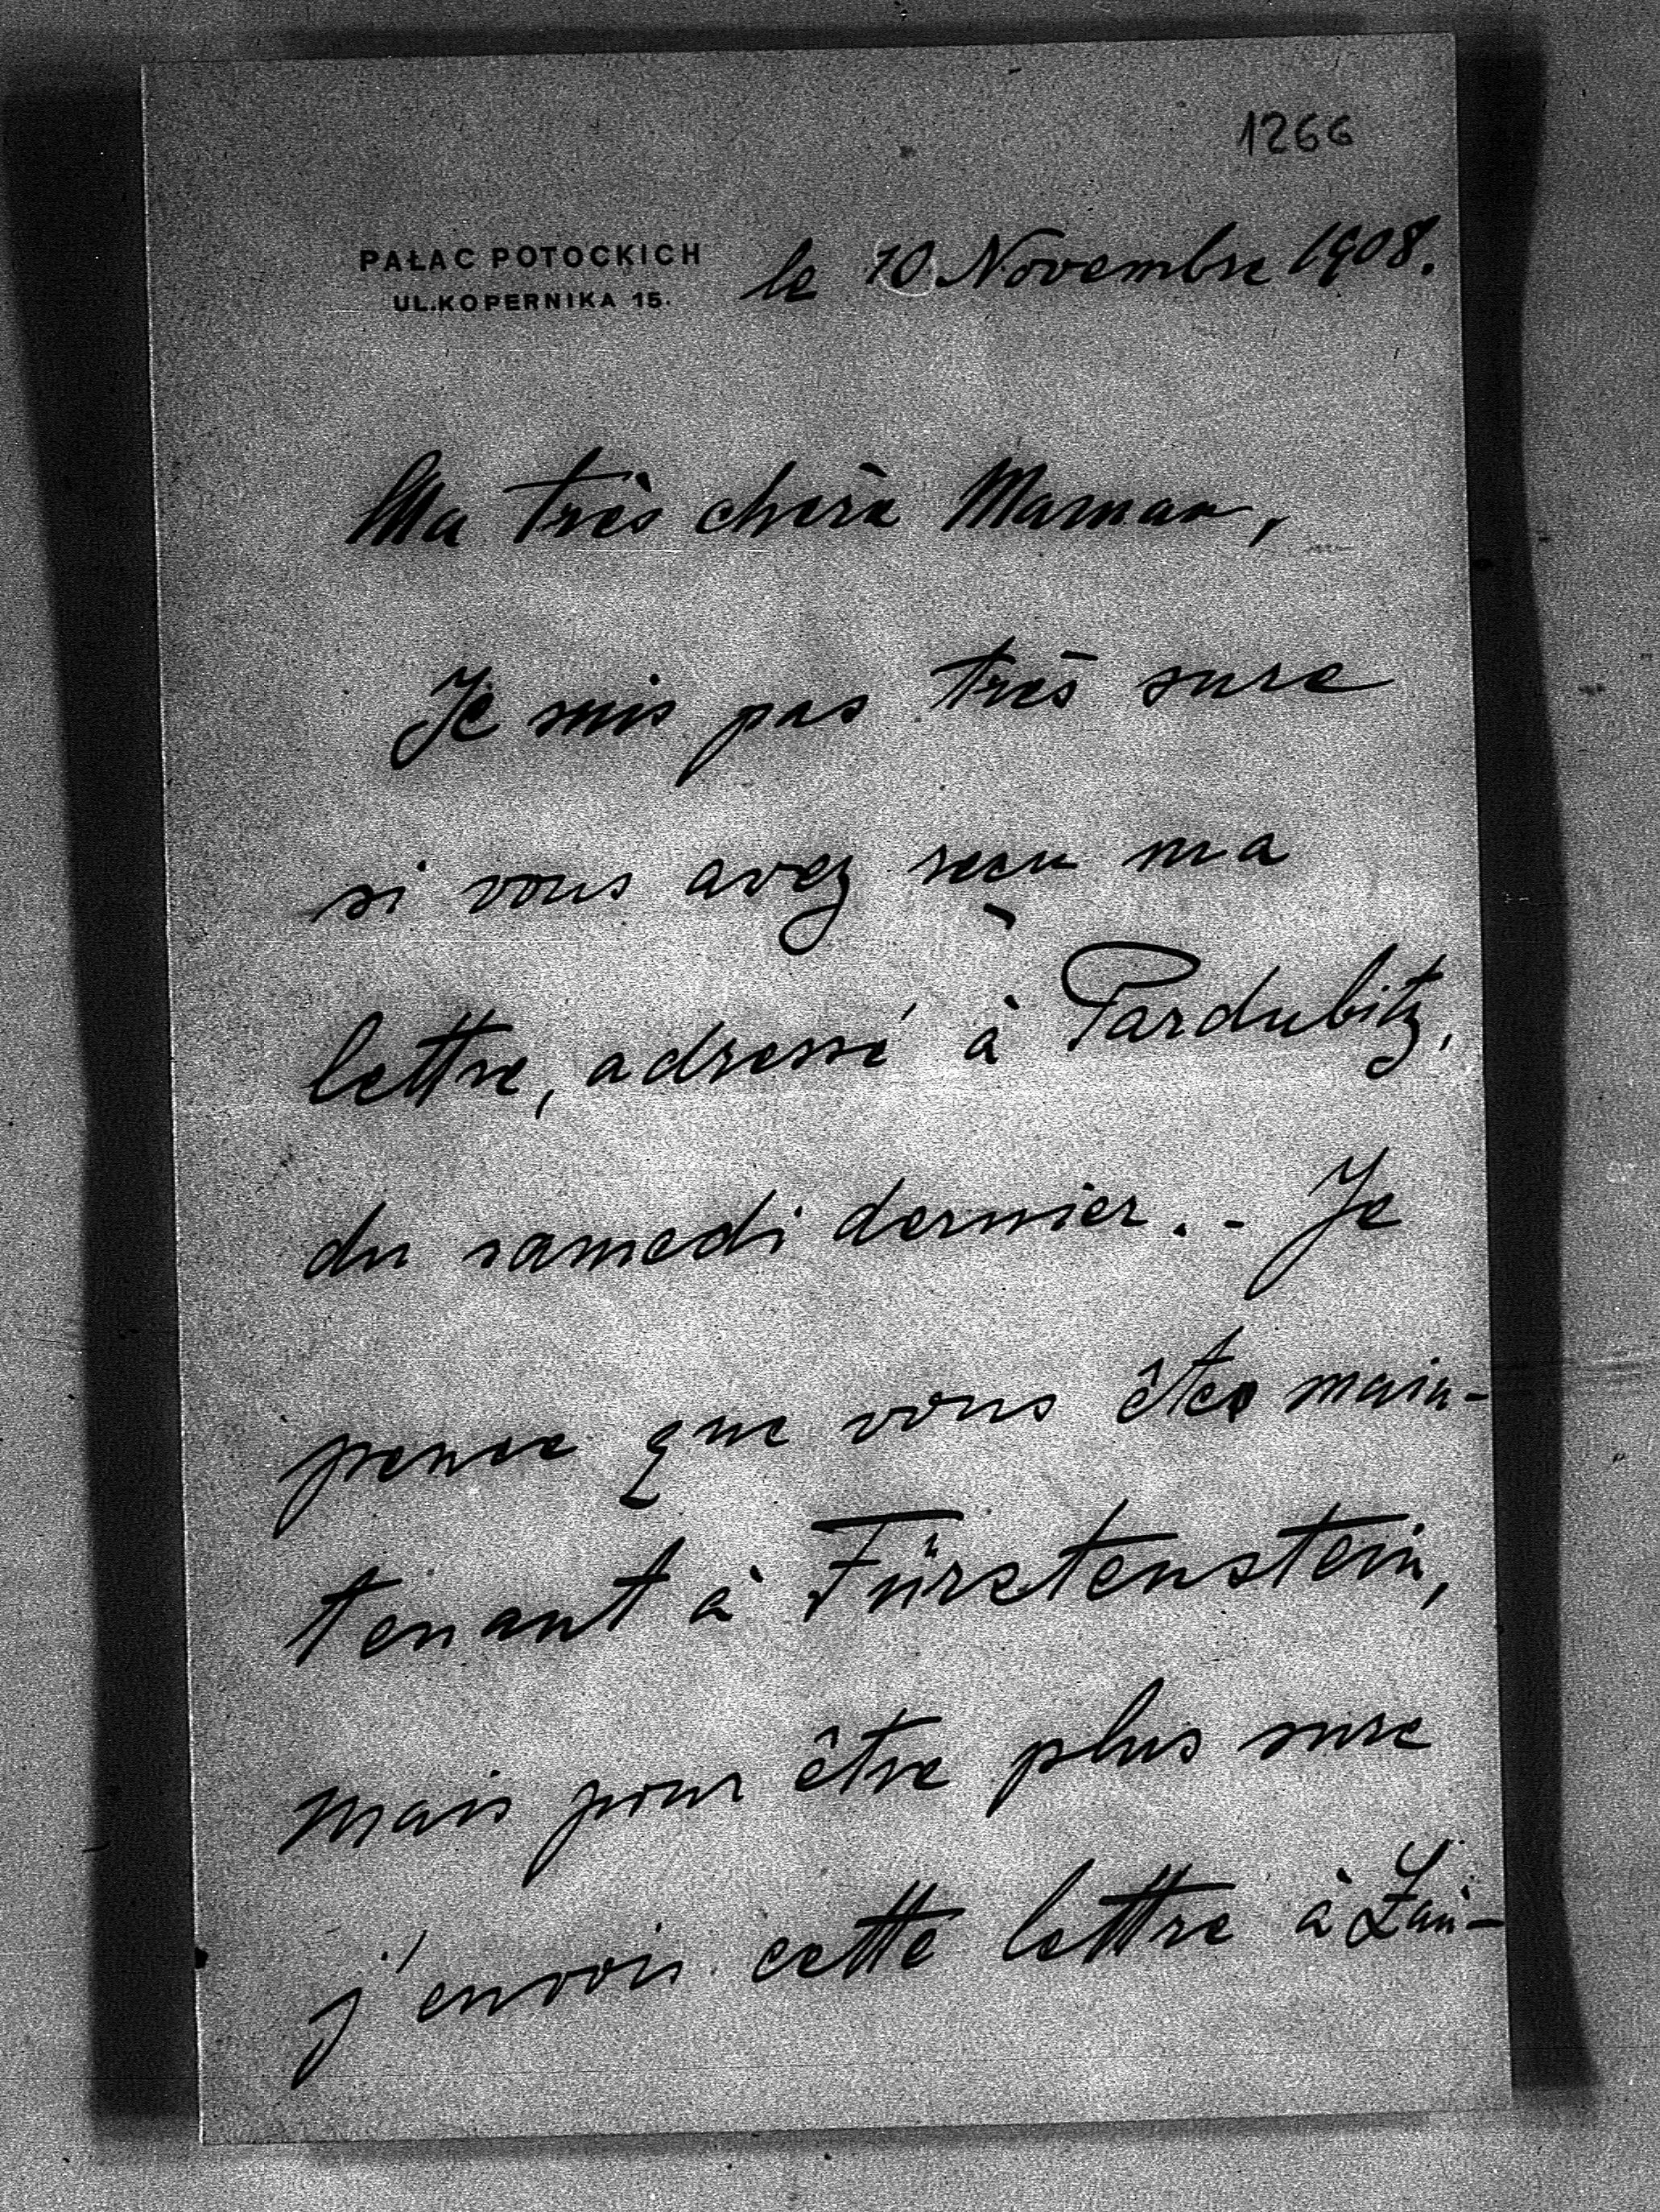 1266
PAŁAC POTOCKICH
UL.KOPERNIKA 15.
le 10 Novembre 1908.
Ma très chère Maman,
Je suis pas très sure
si vous avez reçu ma
lettre, adressé à Pardubitz,
du samedi dernier. - Je
pense que vous êtes main-
tenant à Fürstenstein,
mais pour être plus sure
j'envois cette lettre à Łań-